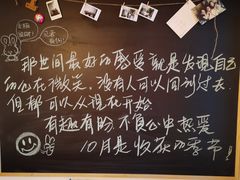 那世间最好的感受就是发现自己
的心在微笑，没有人可以回到过去，
但都可以从现在开始
有趣有盼 不负心中热爱
10月是收获的季节！